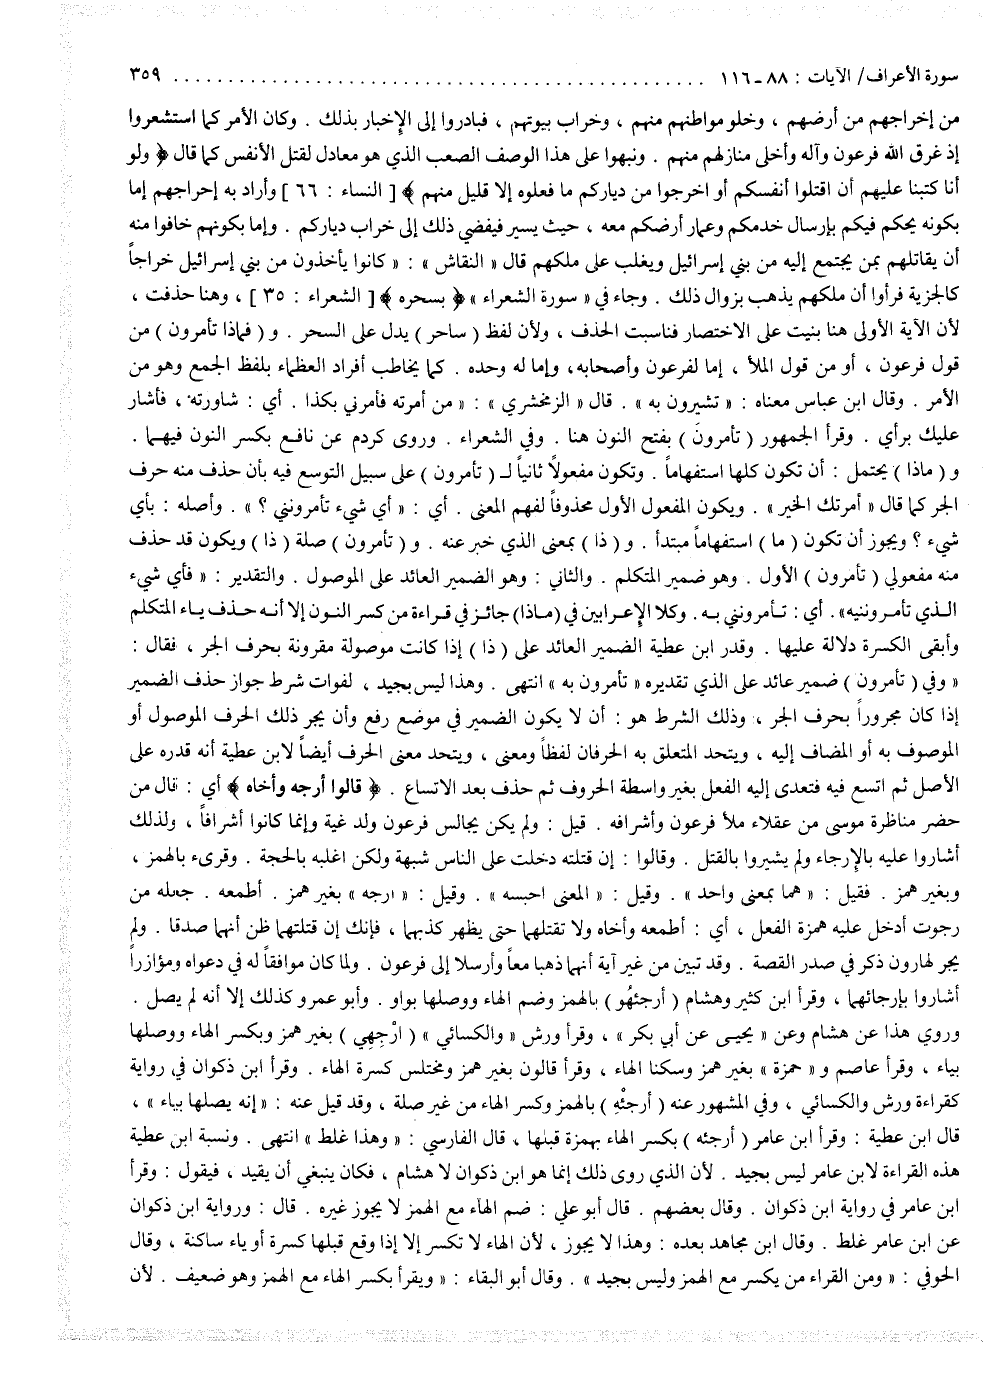 سورة الأعراف/ الآيات : ٨٨ ـ ١١٦ ................................................ ٣٥٩
من إخراجهم من أرضهم ، وخلو مواطنهم منهم ، وخراب بيوتهم ، فبادروا إلى الإخبار بذلك . وكان الأمر كما استشعروا
إذ غرق الله فرعون وآله وأخلى منازلهم منهم . ونبهوا على هذا الوصف الصعب الذي هو معادل لقتل الأنفس كما قال ﴿ ولو
أنا كتبنا عليهم أن اقتلوا أنفسكم أو اخرجوا من دياركم ما فعلوه إلا قليل منهم ﴾ [ النساء : ٦٦ ] وأراد به إحراجهم إما
بكونه يحكم فيكم بإرسال خدمكم وعمار أرضكم معه ، حيث يسير فيفضي ذلك إلى خراب دياركم . وإما بكونهم خافوا منه
أن يقاتلهم بمن يجتمع إليه من بني إسرائيل ويغلب على ملكهم قال « النقاش » : « كانوا يأخذون من بني إسرائيل خراجاً
كالجزية فرأوا أن ملكهم يذهب بزوال ذلك . وجاء في « سورة الشعراء » ﴿ بسحره ﴾ [ الشعراء : ٣٥ ] ، وهنا حذفت ،
لأن الآية الأولى هنا بنيت على الاختصار فناسبت الحذف ، ولأن لفظ ( ساحر ) يدل على السحر . و ( فماذا تأمرون ) من
قول فرعون ، أو من قول الملأ ، إما لفرعون وأصحابه، وإما له وحده . كما يخاطب أفراد العظماء بلفظ الجمع وهو من
الأمر . وقال ابن عباس معناه : « تشيرون به » . قال « الزمخشري » : « من أمرته فأمرني بكذا . أي : شاورته ، فأشار
عليك برأي . وقرأ الجمهور ( تأمرونَ ) بفتح النون هنا . وفي الشعراء . وروى كردم عن نافع بكسر النون فيهما .
و ( ماذا ) يحتمل : أن تكون كلها استفهاماً . وتكون مفعولاً ثانياً لـ ( تأمرون ) على سبيل التوسع فيه بأن حذف منه حرف
الجر كما قال « أمرتك الخير » . ويكون المفعول الأول محذوفاً لفهم المعنى . أي : « أي شيء تأمرونني ؟ » . وأصله : بأي
شيء ؟ ويجوز أن تكون ( ما ) استفهاماً مبتدأ . و ( ذا ) بمعنى الذي خبر عنه . و ( تأمرون ) صلة ( ذا ) ويكون قد حذف
منه مفعولي ( تأمرون ) الأول . وهو ضمير المتكلم . والثاني : وهو الضمير العائد على الموصول . والتقدير : « فأي شيء
الذي تأمروننيه». أي : تأمرونني به . وكلا الإعرابين في (ماذا) جائز في قراءة من كسر النون إلا أنه حذف ياء المتكلم
وأبقى الكسرة دلالة عليها . وقدر ابن عطية الضمير العائد على ( ذا ) إذا كانت موصولة مقرونة بحرف الجر ، فقال :
« وفي ( تأمرون ) ضمير عائد على الذي تقديره « تأمرون به » انتهى . وهذا ليس بجيد ، لفوات شرط جواز حذف الضمير
إذا كان مجروراً بحرف الجر ، وذلك الشرط هو : أن لا يكون الضمير في موضع رفع وأن يجر ذلك الحرف الموصول أو
الموصوف به أو المضاف إليه ، ويتحد المتعلق به الحرفان لفظاً ومعنى ، ويتحد معنى الحرف أيضاً لابن عطية أنه قدره على
الأصل ثم اتسع فيه فتعدى إليه الفعل بغير واسطة الحروف ثم حذف بعد الاتساع . ﴿ قالوا أرجه وأخاه ﴾ أي : قال من
حضر مناظرة موسى من عقلاء ملأ فرعون وأشرافه . قيل : ولم يكن يجالس فرعون ولد غية وإنما كانوا أشرافاً ، ولذلك
أشاروا عليه بالإرجاء ولم يشيروا بالقتل . وقالوا : إن قتلته دخلت على الناس شبهة ولكن اغلبه بالحجة . وقرىء بالهمز ،
وبغير همز . فقيل : « هما بمعنى واحد » . وقيل : « المعنى احبسه » . وقيل : « ارجه » بغير همز . أطمعه . جعله من
رجوت أدخل عليه همزة الفعل ، أي : أطمعه وأخاه ولا تقتلهما حتى يظهر كذبهما ، فإنك إن قتلتهما ظن أنهما صدقا . ولم
يجر لهارون ذكر في صدر القصة . وقد تبين من غير آية أنهما ذهبا معاً وأرسلا إلى فرعون . ولما كان موافقاً له في دعواه ومؤازراً
أشاروا بإرجائهما ، وقرأ ابن كثير وهشام ( أرجئهُو ) بالهمز وضم الهاء ووصلها بواو . وأبو عمرو كذلك إلا أنه لم يصل .
وروي هذا عن هشام وعن « يحيى عن أبي بكر » ، وقرأ ورش « والكسائي » ( ارْجِهِي ) بغير همز وبكسر الهاء ووصلها
بياء ، وقرأ عاصم و « حمزة » بغير همز وسكنا الهاء ، وقرأ قالون بغير همز ومختلس كسرة الهاء . وقرأ ابن ذكوان في رواية
كقراءة ورش والكسائي ، وفي المشهور عنه ( أرجئْهِ ) بالهمز وكسر الهاء من غير صلة ، وقد قيل عنه : « إنه يصلها بياء » ،
قال ابن عطية : وقرأ ابن عامر ( أرجئه ) بكسر الهاء بهمزة قبلها ، قال الفارسي : « وهذا غلط » انتهى . ونسبة ابن عطية
هذه القراءة لابن عامر ليس بجيد . لأن الذي روى ذلك إنما هو ابن ذكوان لا هشام ، فكان ينبغي أن يقيد ، فيقول : وقرأ
ابن عامر في رواية ابن ذكوان . وقال بعضهم . قال أبو علي : ضم الهاء مع الهمز لا يجوز غيره . قال : ورواية ابن ذكوان
عن ابن عامر غلط . وقال ابن مجاهد بعده : وهذا لا يجوز ، لأن الهاء لا تكسر إلا إذا وقع قبلها كسرة أو ياء ساكنة ، وقال
الحوفي : « ومن القراء من يكسر مع الهمز وليس بجيد » . وقال أبو البقاء : « ويقرأ بكسر الهاء مع الهمز وهو ضعيف . لأن